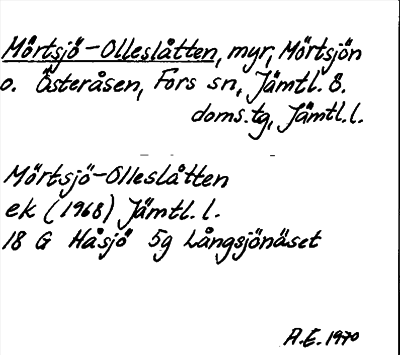 Mörtsjö-Olleslåtten, myr, Mörtsjön
o. Österåsen, Fors sn, Jämtl. ö.
doms.tg, Jämtl.l.
Mörtsjö-Olleslåtten
ek (1968) Jämtl. l.
18 G Håsjö 5g Långsjönäset
A.E. 1970